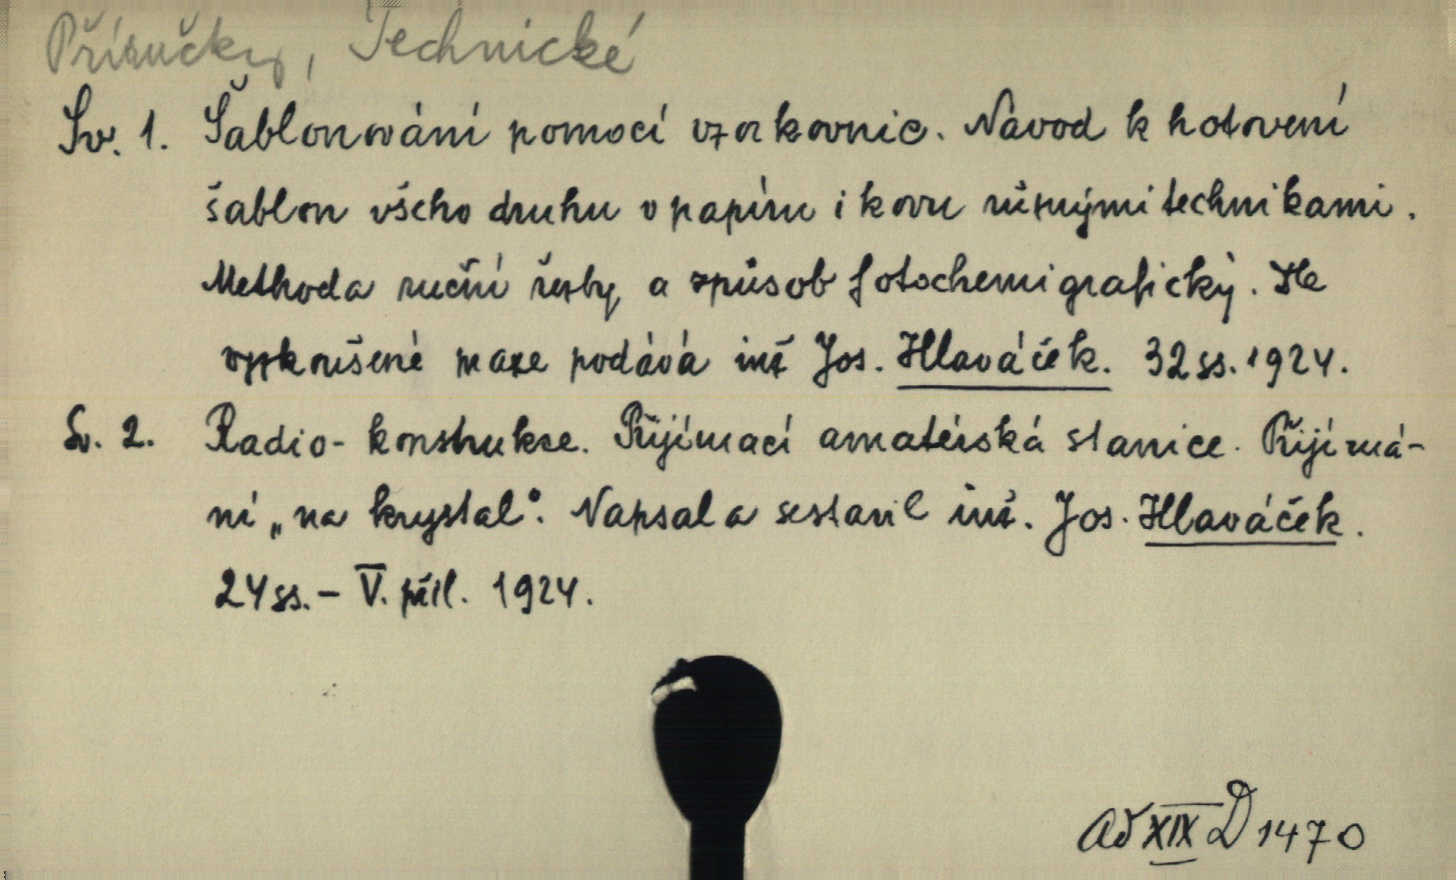 Příručky, Technické
Sv. 1. Šablonování pomocí vzorkovnic. Návod k hotovení
šablon všeho druhu v papíru i kovu různými technikami.
Methoda ruční řezby a způsob fotochemigrafický. Ze
vyzkoušené praxe podává inž Jos. Hlaváček. 32 ss. 1924.
Sv. 2. Radio-konstrukce. Přijímací amatérská stanice. Přijímá-
ní „na krystal". Napsal a sestavil inž. Jos. Hlaváček.
24 ss. - V. příl. 1924.
Ad XIX D 1470